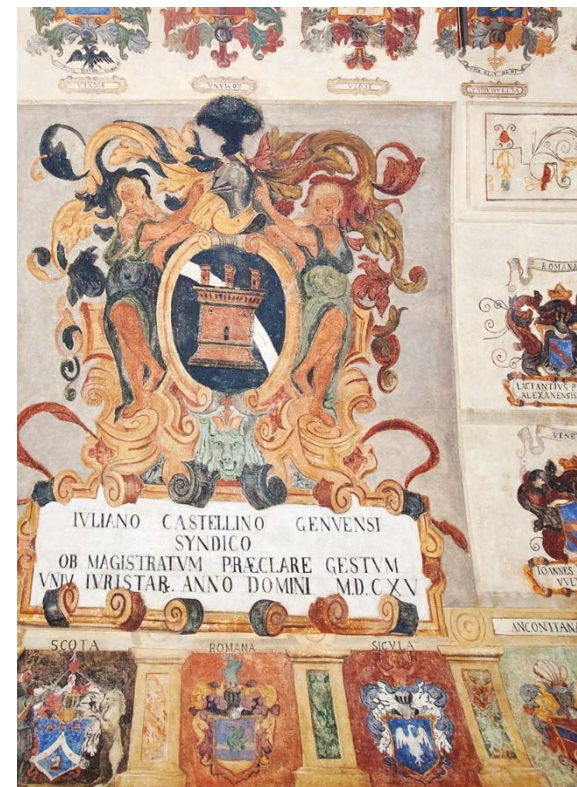 SICVLA
ROMANA
SCOTA
VLTRAMARINA
ROMANA
LACTANTIVS
ALEXANENSIS
VENE
IOANNES
VVLT
IVLIANO CASTELLINO GENVENSI
SYNDICO
OB MAGISTRATVM PRÆCLARE GESTVM
VNIV IVRISTAR. ANNO DOMINI M.D.CXV
ANCONITANA
SCOTA
ROMANA
SICVLA